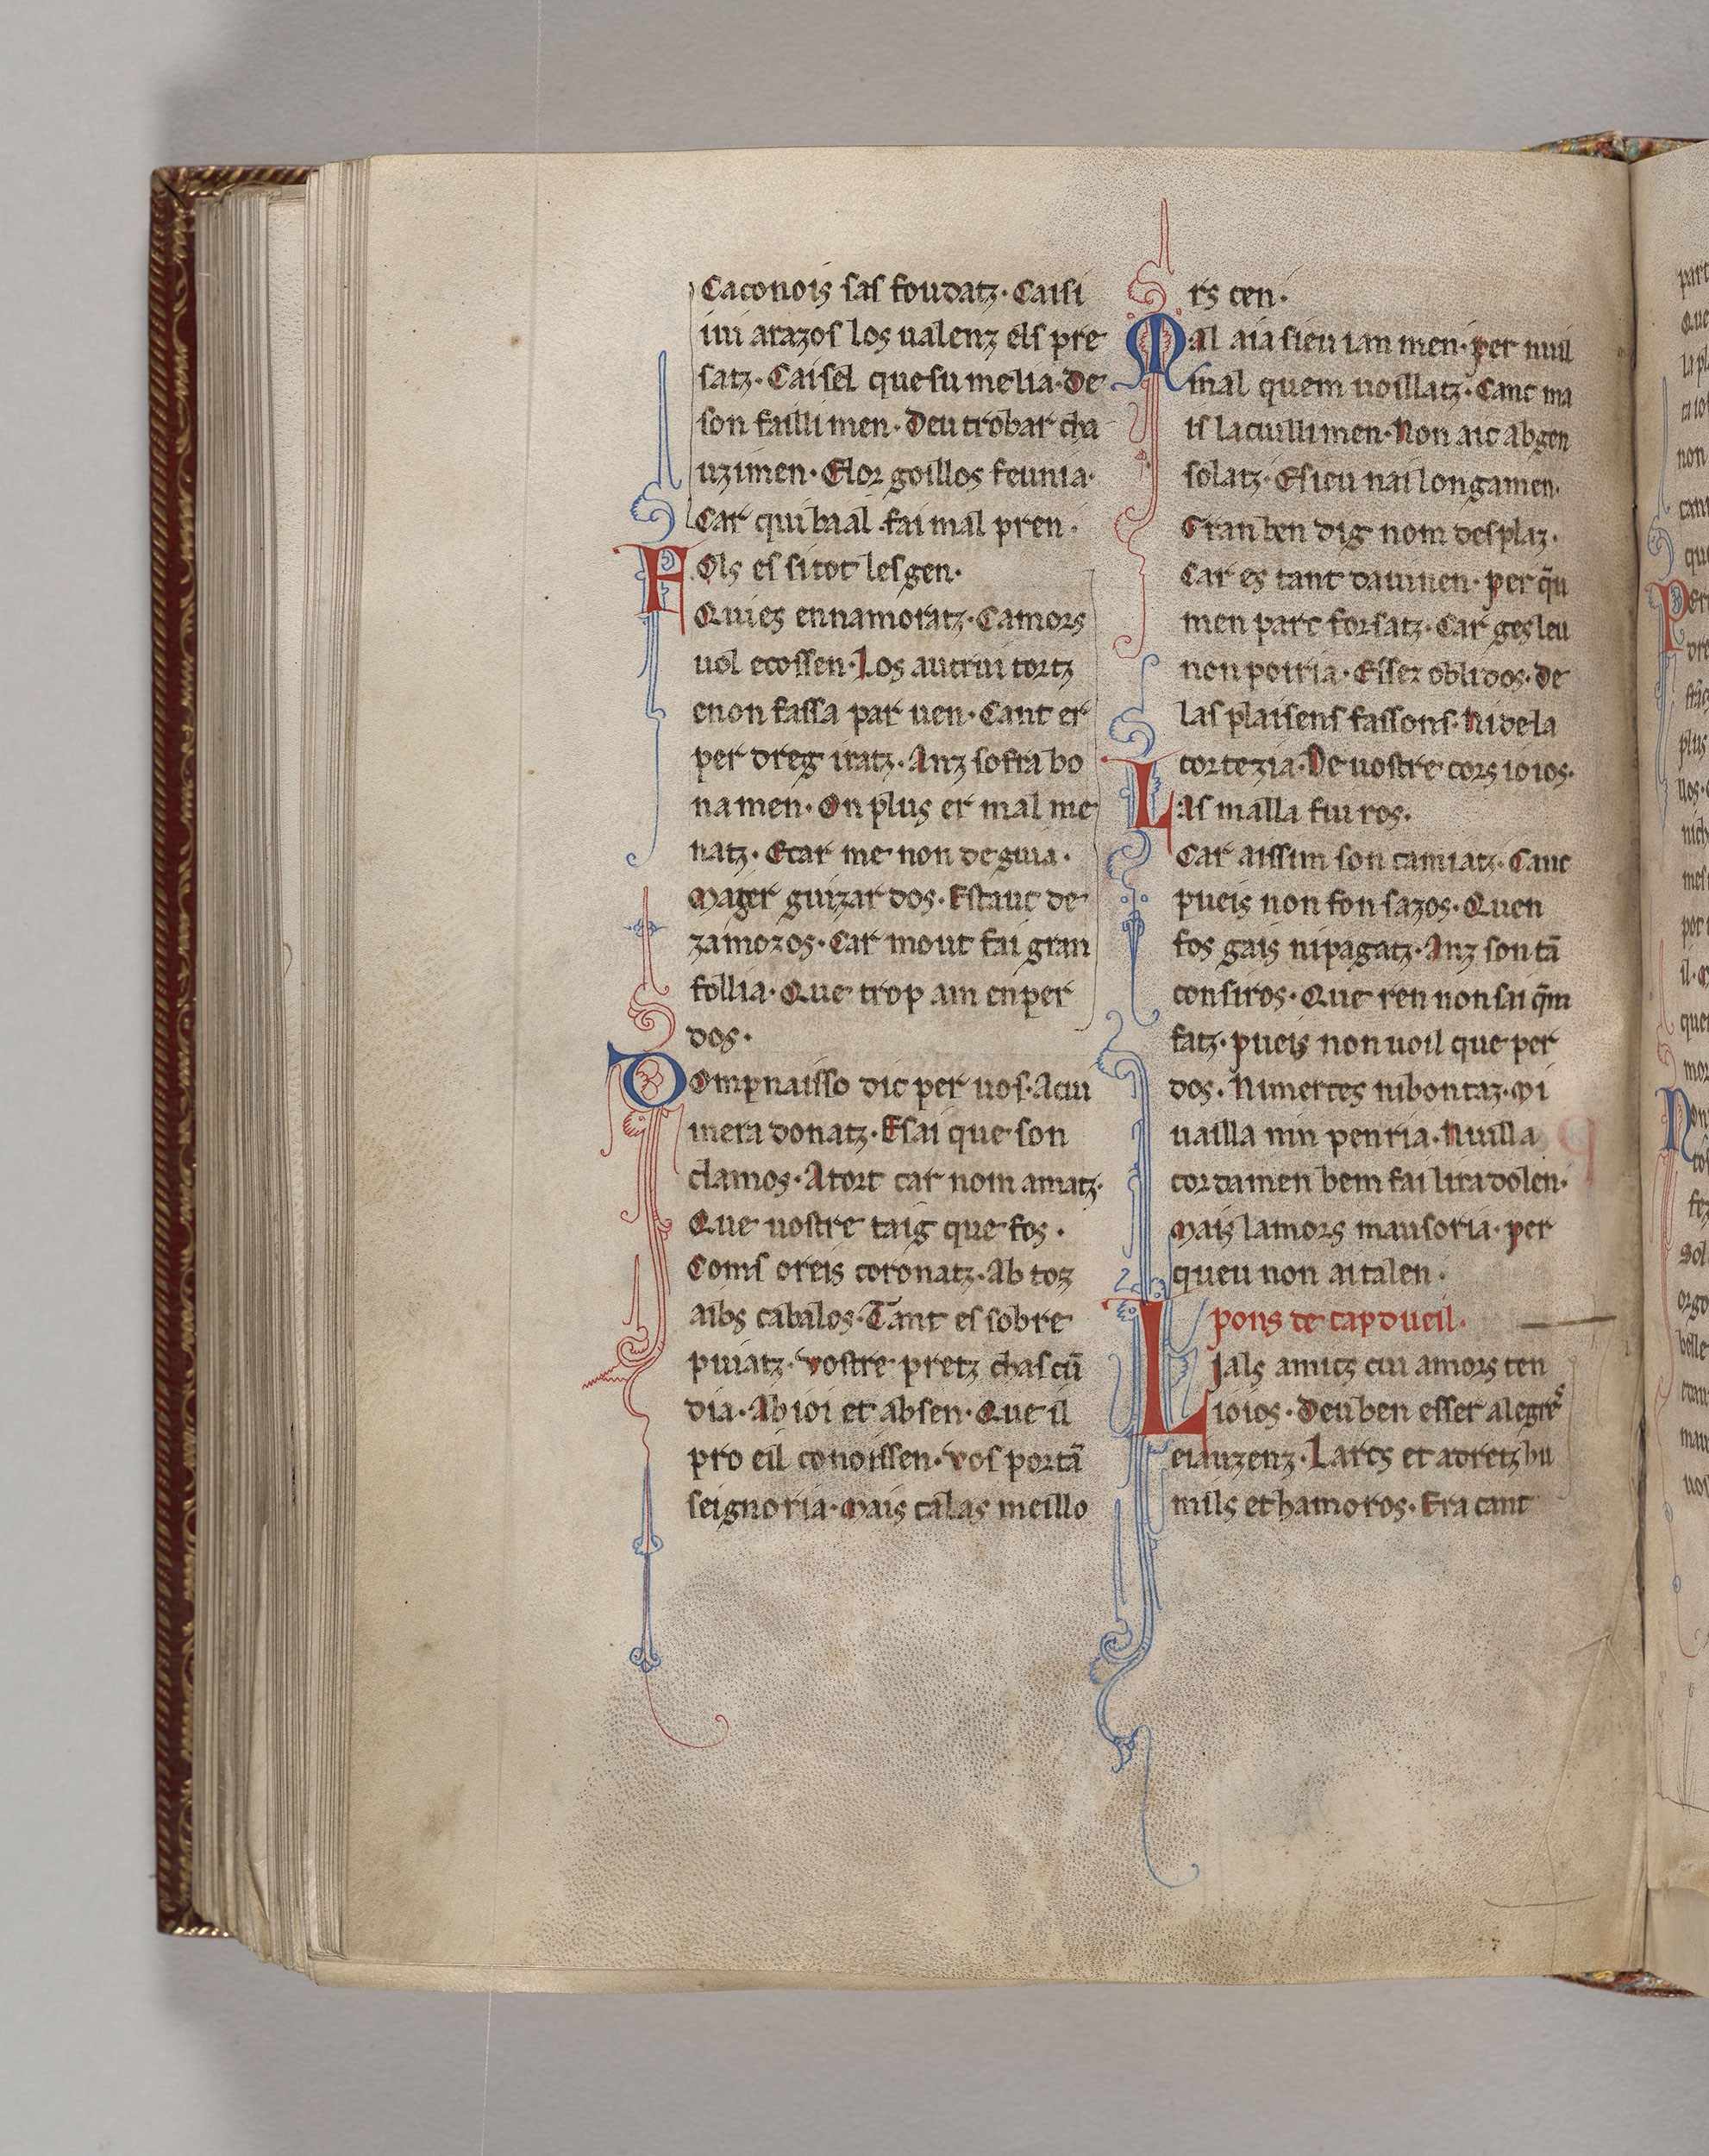 Caconois sas foudatz· Caisi
iui arazos los ualenz els pre
satz· Caisel que su melia· De
son faillimen· Deu trobar cha
uzimen· Elor goillos feunia·
Car qui baal fai mal pren·
Fols es sitot les gen·
Qui es ennamoratz· Camors
uol ecossen· Los autrui tortz
enon fassa par uen· Cant er
per dreg iratz· Anz sofra bo
namen· On plus er mal me
natz· Ecar me non deguia·
Mager guizardos· Estauc de
zamozos· Car mout fai gran
follia· Que trop am enper
dos·
Dompnaisso dic per uos· Acui
mera donatz· Esai que son
clamos· Atort car nom amatz·
Que uostre taig que fos·
Coms o reis coronatz· Ab toz
aibs cabalos· Tant es sobre
puiatz· Vostre pretz chascū
dia· Ab ioi et ab sen· Que il
pro eil conoissen· Vos portā
seignoria· Mais calas meillo
rs cen·
Mal aia sieu ian men· per nuil
mal quem uoillatz· Canc ma
is lacuillimen· Non aic ab gen
solatz· Esieu nai longamen·
Gran ben dig nom desplaz·
Car es tant dauinen· per q̄u
men part forsatz· Car ges leu
non poiria· Esser oblidos· De
las plaisens faissons· Ni de la
cortezia· De uostre cors ioios·
Las malla fui ros·
Car aissim son camiatz· Canc
pueis non fon sazos· Quen
fos gais ni pagatz· Anz son tā
consiros· Que ren non sui q̄m
fatz· pueis non uoil que per
dos· Ni merces ni bontaz· Mi
uailla nin penria· Nuilla
cordamen bem fai lira dolen·
Mais lamors mausoria· per
queu non ai talen·
pons de capdueil·
Lials amics cui amors ten
ioios· Deu ben esser alegres
eiauzenz· Larcs et adretz hu
mils et hamoros· Era cant